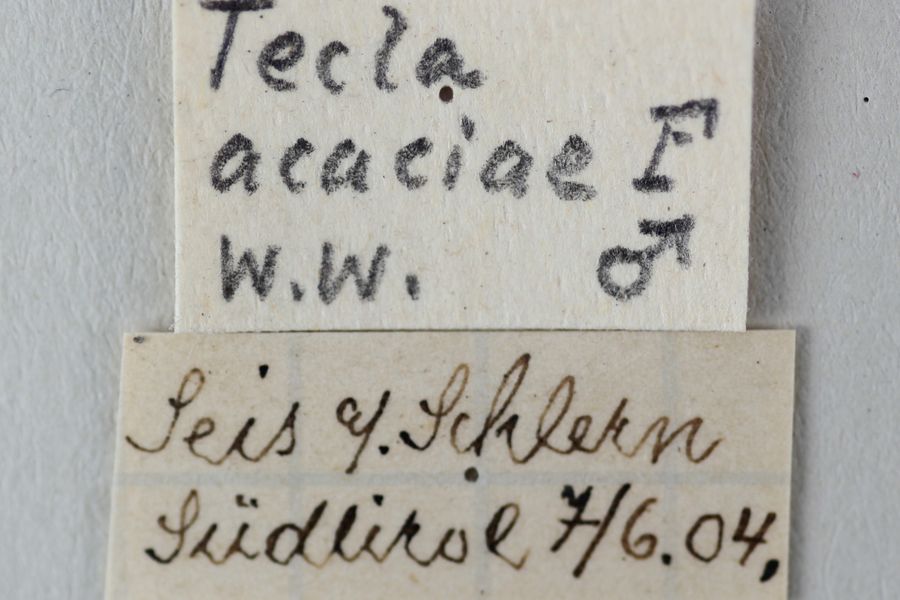 Tecla
acaciae F
W.W. ♂
Seis a/. Schlern
Südtirol 7/6.04.